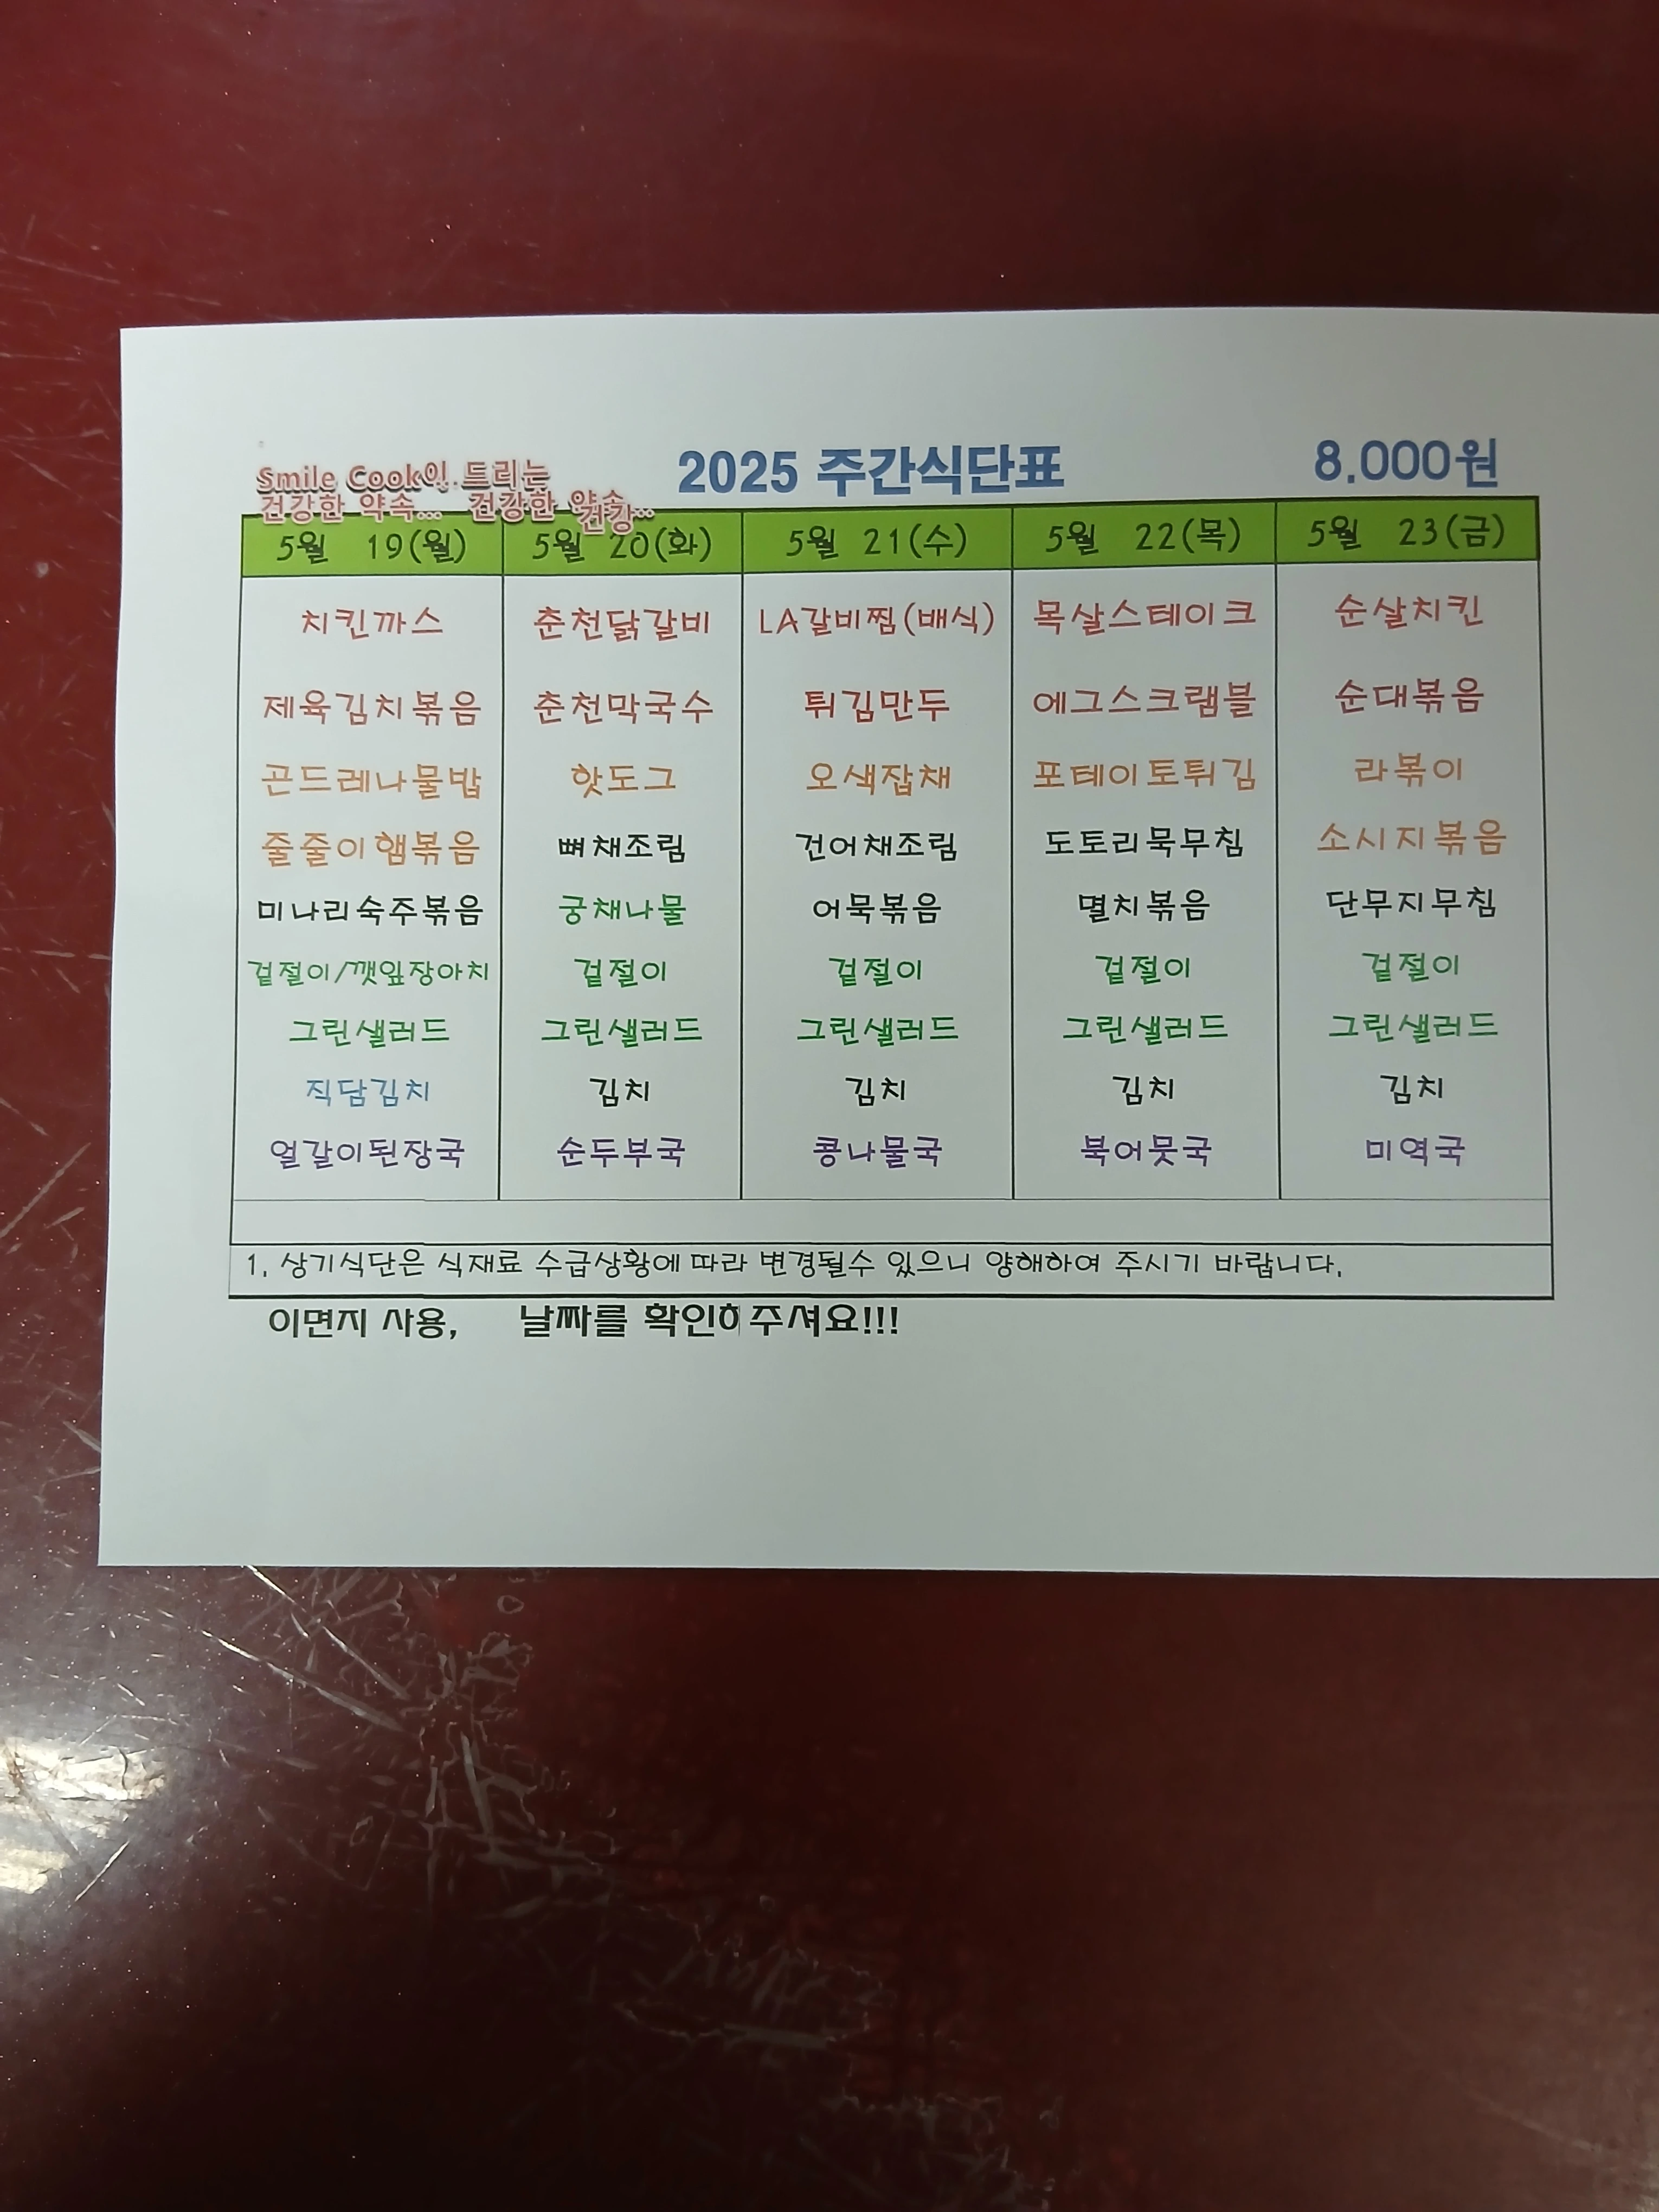 Smile Cook이 드리는
건강한 약속... 건강한 약속
건강...
2025 주간식단표
8.000원
5월 19(월) 5월 20(화) 5월 21(수) 5월 22(목) 5월 23(금)
치킨까스 춘천닭갈비 LA갈비찜(배식) 목살스테이크 순살치킨
제육김치볶음 춘천막국수 튀김만두 에그스크램블 순대볶음
곤드레나물밥 핫도그 오색잡채 포테이토튀김 라볶이
줄줄이햄볶음 뼈채조림 건어채조림 도토리묵무침 소시지볶음
미나리숙주볶음 궁채나물 어묵볶음 멸치볶음 단무지무침
겉절이/깻잎장아치 겉절이 겉절이 겉절이 겉절이
그린샐러드 그린샐러드 그린샐러드 그린샐러드 그린샐러드
직담김치 김치 김치 김치 김치
얼갈이된장국 순두부국 콩나물국 북어뭇국 미역국
1. 상기식단은 식재료 수급상황에 따라 변경될수 있으니 양해하여 주시기 바랍니다.
이면지 사용, 날짜를 주셔요!!!